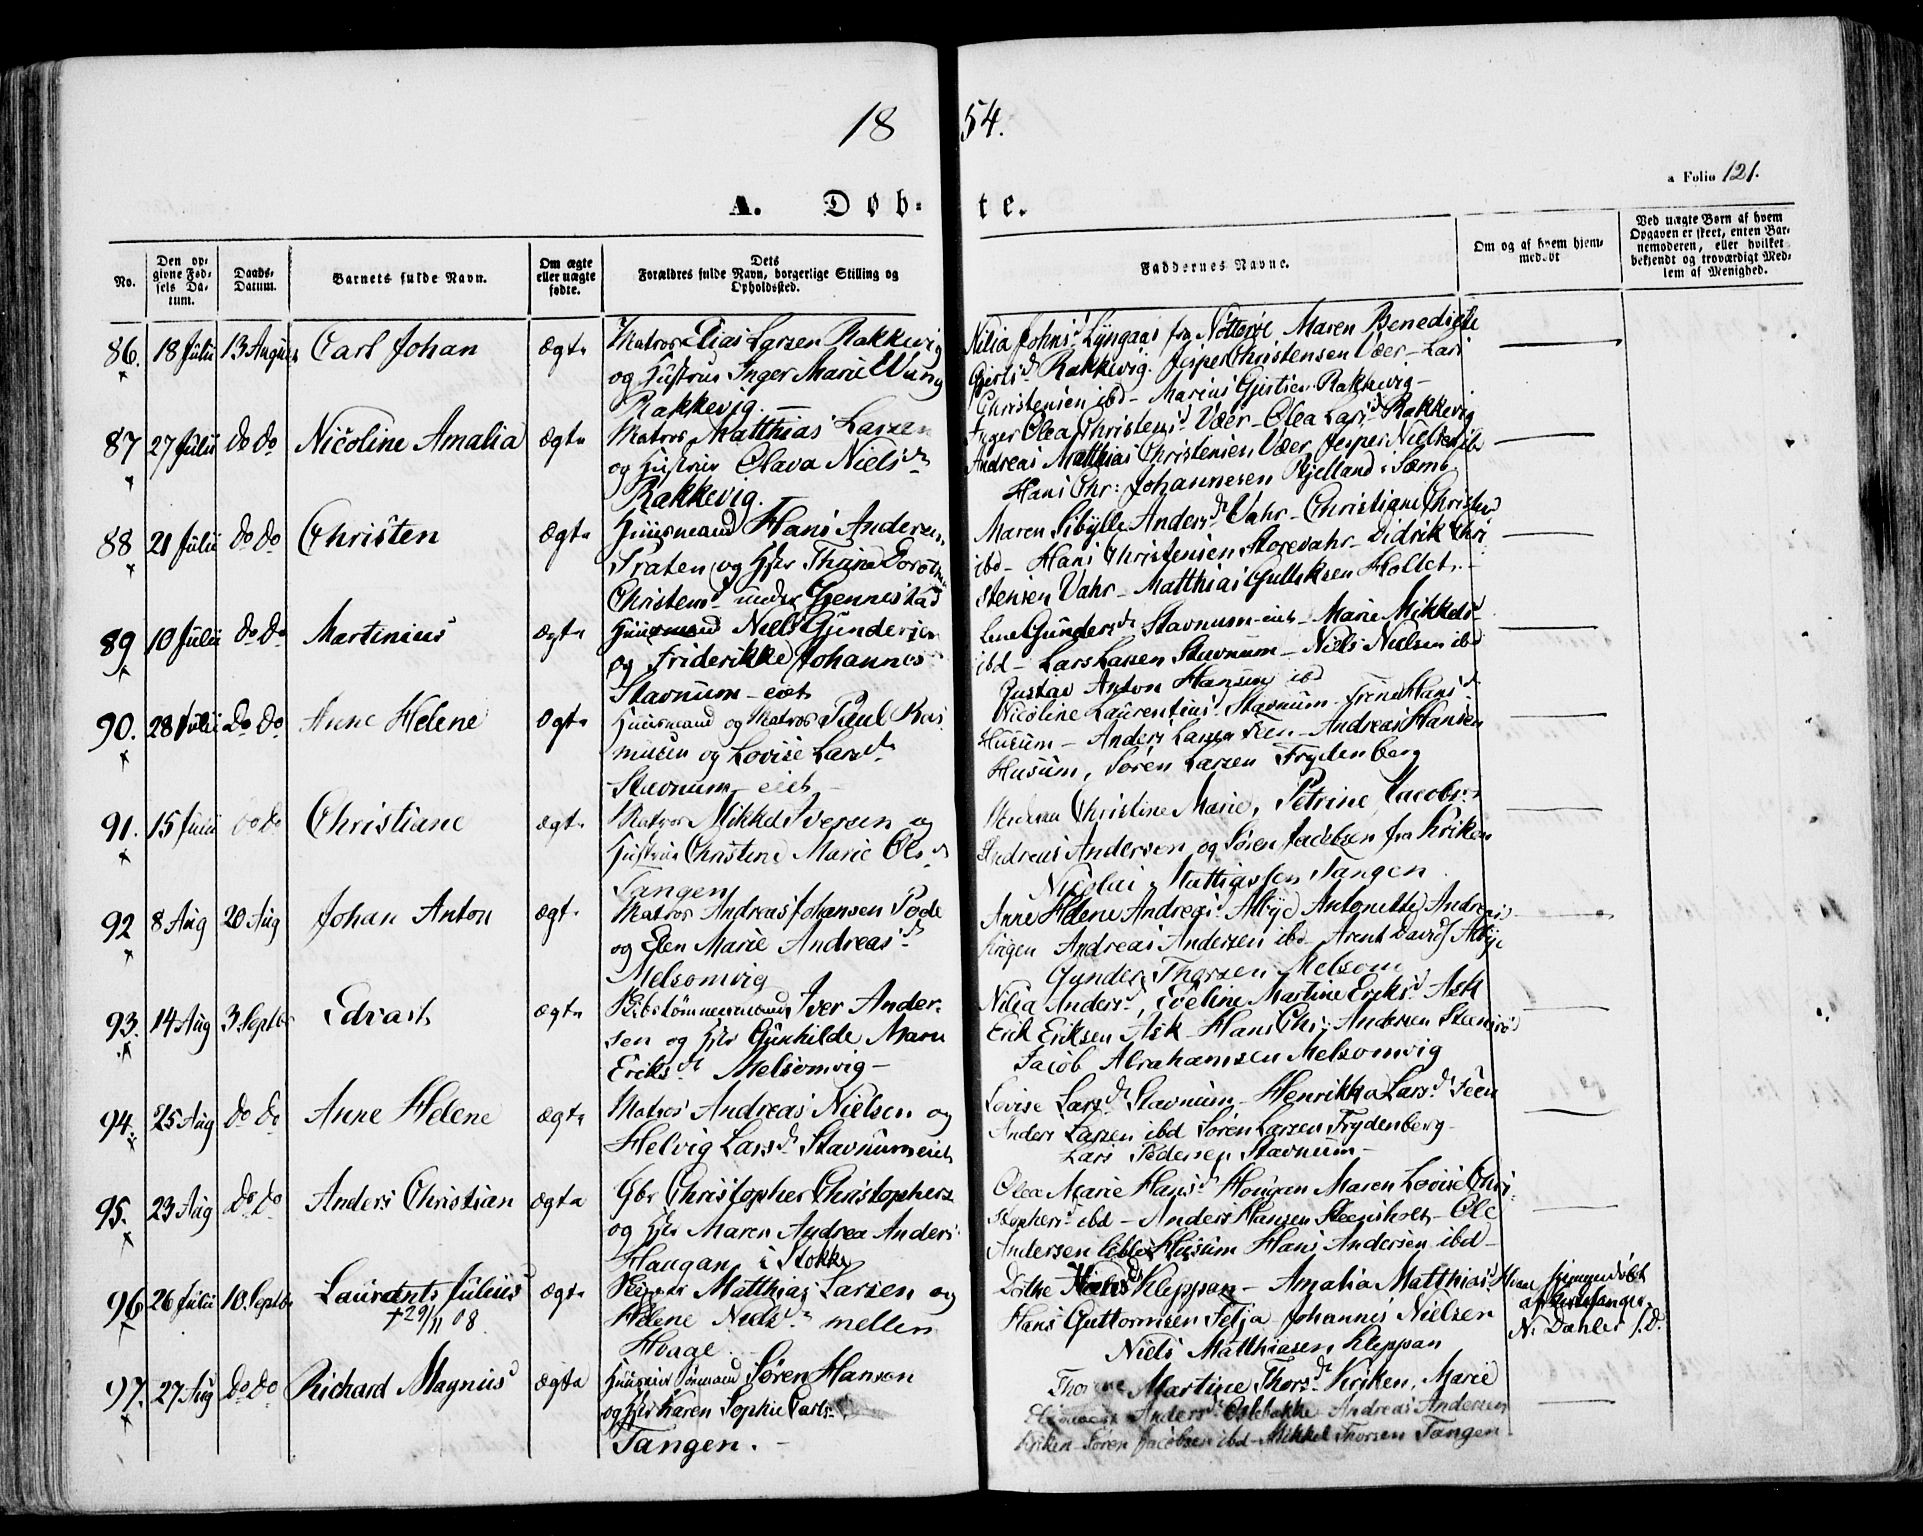 1854.
a Folio 121.
A. Døbte.
No.
Den opgivne Fødsels Datum.
Daabs-Datum.
Barnets fulde Navn.
Om ægte eller uægte fødte.
Dets Forældres fulde Navn, borgerlige Stilling og Opholdssted.
Faddernes Navne.
Om og af hvem hjemmedøbt
Ved uægte Børn af hvem Opgaven er skeet, enten Barnemoderen, eller hvilket bekjendt og troværdigt Medlem af Menighed.
86. 18 Julii 13 August Carl Johan ægte
Matros Elias Larsen Rakkevig
og Hustrue Inger Marie
Rakkevig.
Nilia Johns.d Lyngaas fra Nøtterøe Maren Benedicte
Gierts.d Rakkevig. Jesper Christensen Vær - Lars
Christensen ibd - Marius Gjertsen Rakkevig -
87 27 Julii do do Nicoline Amalia ægte
Matros Matthias Larsen
og Hustrue Olava Niels.d
Rakkevig.
Inger Olea Christens.d Vær - Olea Lars.d Rakkevig
Andreas Matthias Christensen Vær Jesper Nielsen ibd
Hans Chr: Johannesen Rjelland i Sæm
88 21 Julii do do Christen ægte
Huusmand Hans Andersen
Praten og Hstr Thrine Dorothea
Christens.d under Gjennestad
Maren Sibylle Anders.d Vahr - Christiane Christens
ibd - Hans Christensen Storevahr - Didrik Christensen
Vahr - Matthias Gulliksen Holtet. -
89 10 Julii do do Martinius ægte
Huusmand Niels Gundersen
og Friderikke Johannes
Stavnum - eiet
Lene Gunders.d Stavnum - eiet - Marie Mikkels.d
ibd - Lars Larsen Stavnum - Niels Nielsen ibd
Gustav Anton Hansen ibd
90. 28 Julii do do Anne Helene ægte
Huusmand og Matros Paul Rasmusen
og Lovise Lars.d
Stavnum - eiet -
Nicoline Laurentius.d Stavnum. Hans.d
Husum - Anders Larsen Feen - Andreas Hansen
Husum, Søren Larsen Frydenberg
91. 15 Julii do do Christiane ægte
Matros Mikkel Iversen og
Hustrue Christine Marie Ols.d
Tangen
Moderen Christine Marie, Petrine Jacobs.d
Andreas Andersen og Søren Jacobsen fra Kriken
Nicolai Mattiassen Tangen.
92 8 Aug 20 Aug Johan Anton ægt.
Matros Andreas Johansen
og Elen Marie Andreas.d
Melsomvig
Anne Helene Andreas.d Albye Antonette Andreas
Andreas Andersen ibd - Arent David Albye
Gunder Thorsen Melsom
93. 14 Aug 3 Septbr Edvart ægte
Skibstømmermand Iver Andersen
og Hstr Gunhilde Maren
Eriks.d Melsomvig -
Nilia Anders.d, Eveline Martine Eriks.d Ask
Erik Eriksen Ask - Hans Chr. Andersen
Jacob Abrahamsen Melsomvig
94. 25 Aug do do Anne Helene ægte
Matros Andreas Nielsen og
Helvig Lars.d Stavnum eiet
Lovise Lars.d Stavnum - Henrikka Lars.d Feen
Anders Larsen ibd Søren Larsen Frydenberg -
Lars Pedersen Stavnum -
95. 23 Aug do do Anders Christian ægte
Gbr Christopher Christophersen
og Hstr Maren Andrea Anders
Haugan i Stokke
Olea Marie Hans.d Hougan Maren Lovise Christophers.d
ibd - Anders Hansen Steensholt - Ole
Andersen Husum Hans Andersen ibd -
96 26 Julii 10. Septbr Laurants Julius ægte
† 29/11 08.
Matthias Larsen og
Helene Niels.d mellem
Houge.
Dorthe Niels.d Kleppan - Amalia Matthias.d
Hans Guttormsen Johannes Nielsen
Niels Matthiasen Kleppan
hjemmedøbt
af
N. Dahler
97. 27 Aug do do Richard Magnus ægte
Huusmand Sømand Søren Hansen
og Hstr Karen Sophie Carls
Tangen. -
Martine Thors.d Kriken, Marie
Anders.d Andreas Andersen
Kriken - Søren Jacobsen ibd - Mikkel Thorsen Tangen.